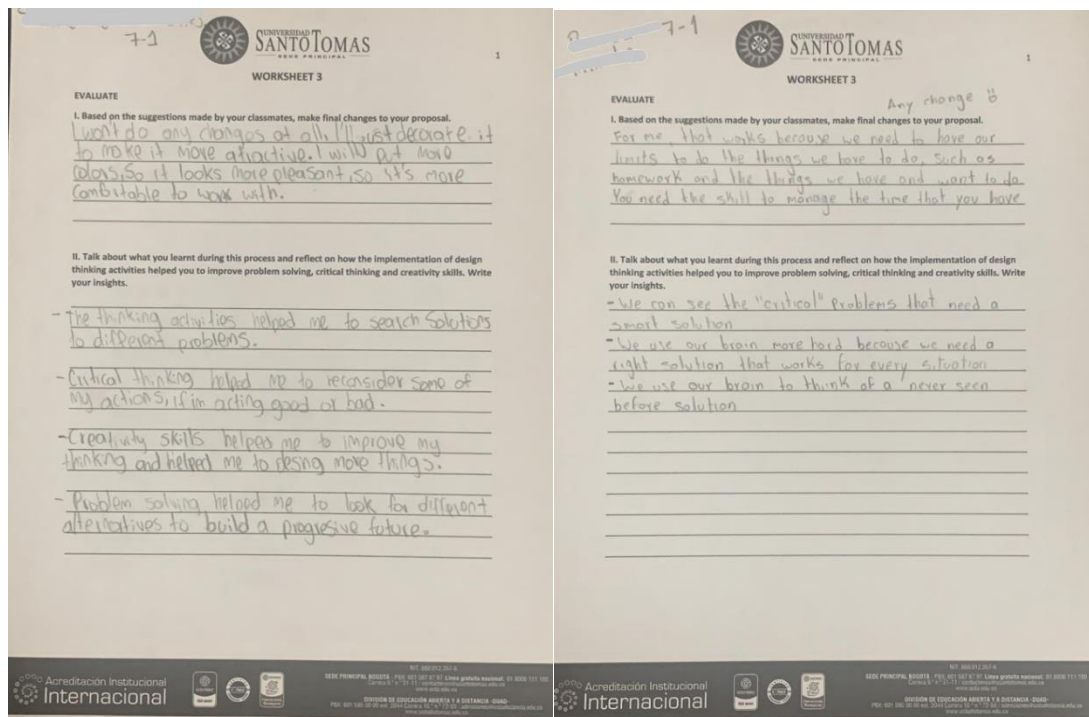 7-1
UNIVERSIDAD
SANTO TOMAS
SEDE PRINCIPAL
1
WORKSHEET 3
EVALUATE
I. Based on the suggestions made by your classmates, make final changes to your proposal.
I wont do any changes at all, I'll just decorate it
to make it more atractive. I will put more
colors, So it looks more pleasant, so it's more
comfortable to work with.
II. Talk about what you learnt during this process and reflect on how the implementation of design
thinking activities helped you to improve problem solving, critical thinking and creativity skills. Write
your insights.
- The thinking activities helped me to search Solutions
to different problems.
- Critical thinking helped me to reconsider some of
my actions, if im acting good or bad.
- Creativity skills helped me to improve my
thinking and helped me to desing more things.
- Problem solving helped me to look for different
alternatives to build a progresive future.
Acreditación Institucional
Internacional
7-1
UNIVERSIDAD
SANTO TOMAS
SEDE PRINCIPAL
1
WORKSHEET 3
EVALUATE
Any change
I. Based on the suggestions made by your classmates, make final changes to your proposal.
For me, that works because we need to have our
limits to do the things we have to do, such as
homework and the things we have and want to do.
You need the skill to manage the time that you have
II. Talk about what you learnt during this process and reflect on how the implementation of design
thinking activities helped you to improve problem solving, critical thinking and creativity skills. Write
your insights.
- We can see the "critical" Problems that need a
smart solution
- We use our brain more hard because we need a
right solution that works for every situation
- We use our brain to think of a never seen
before solution
Acreditación Institucional
Internacional